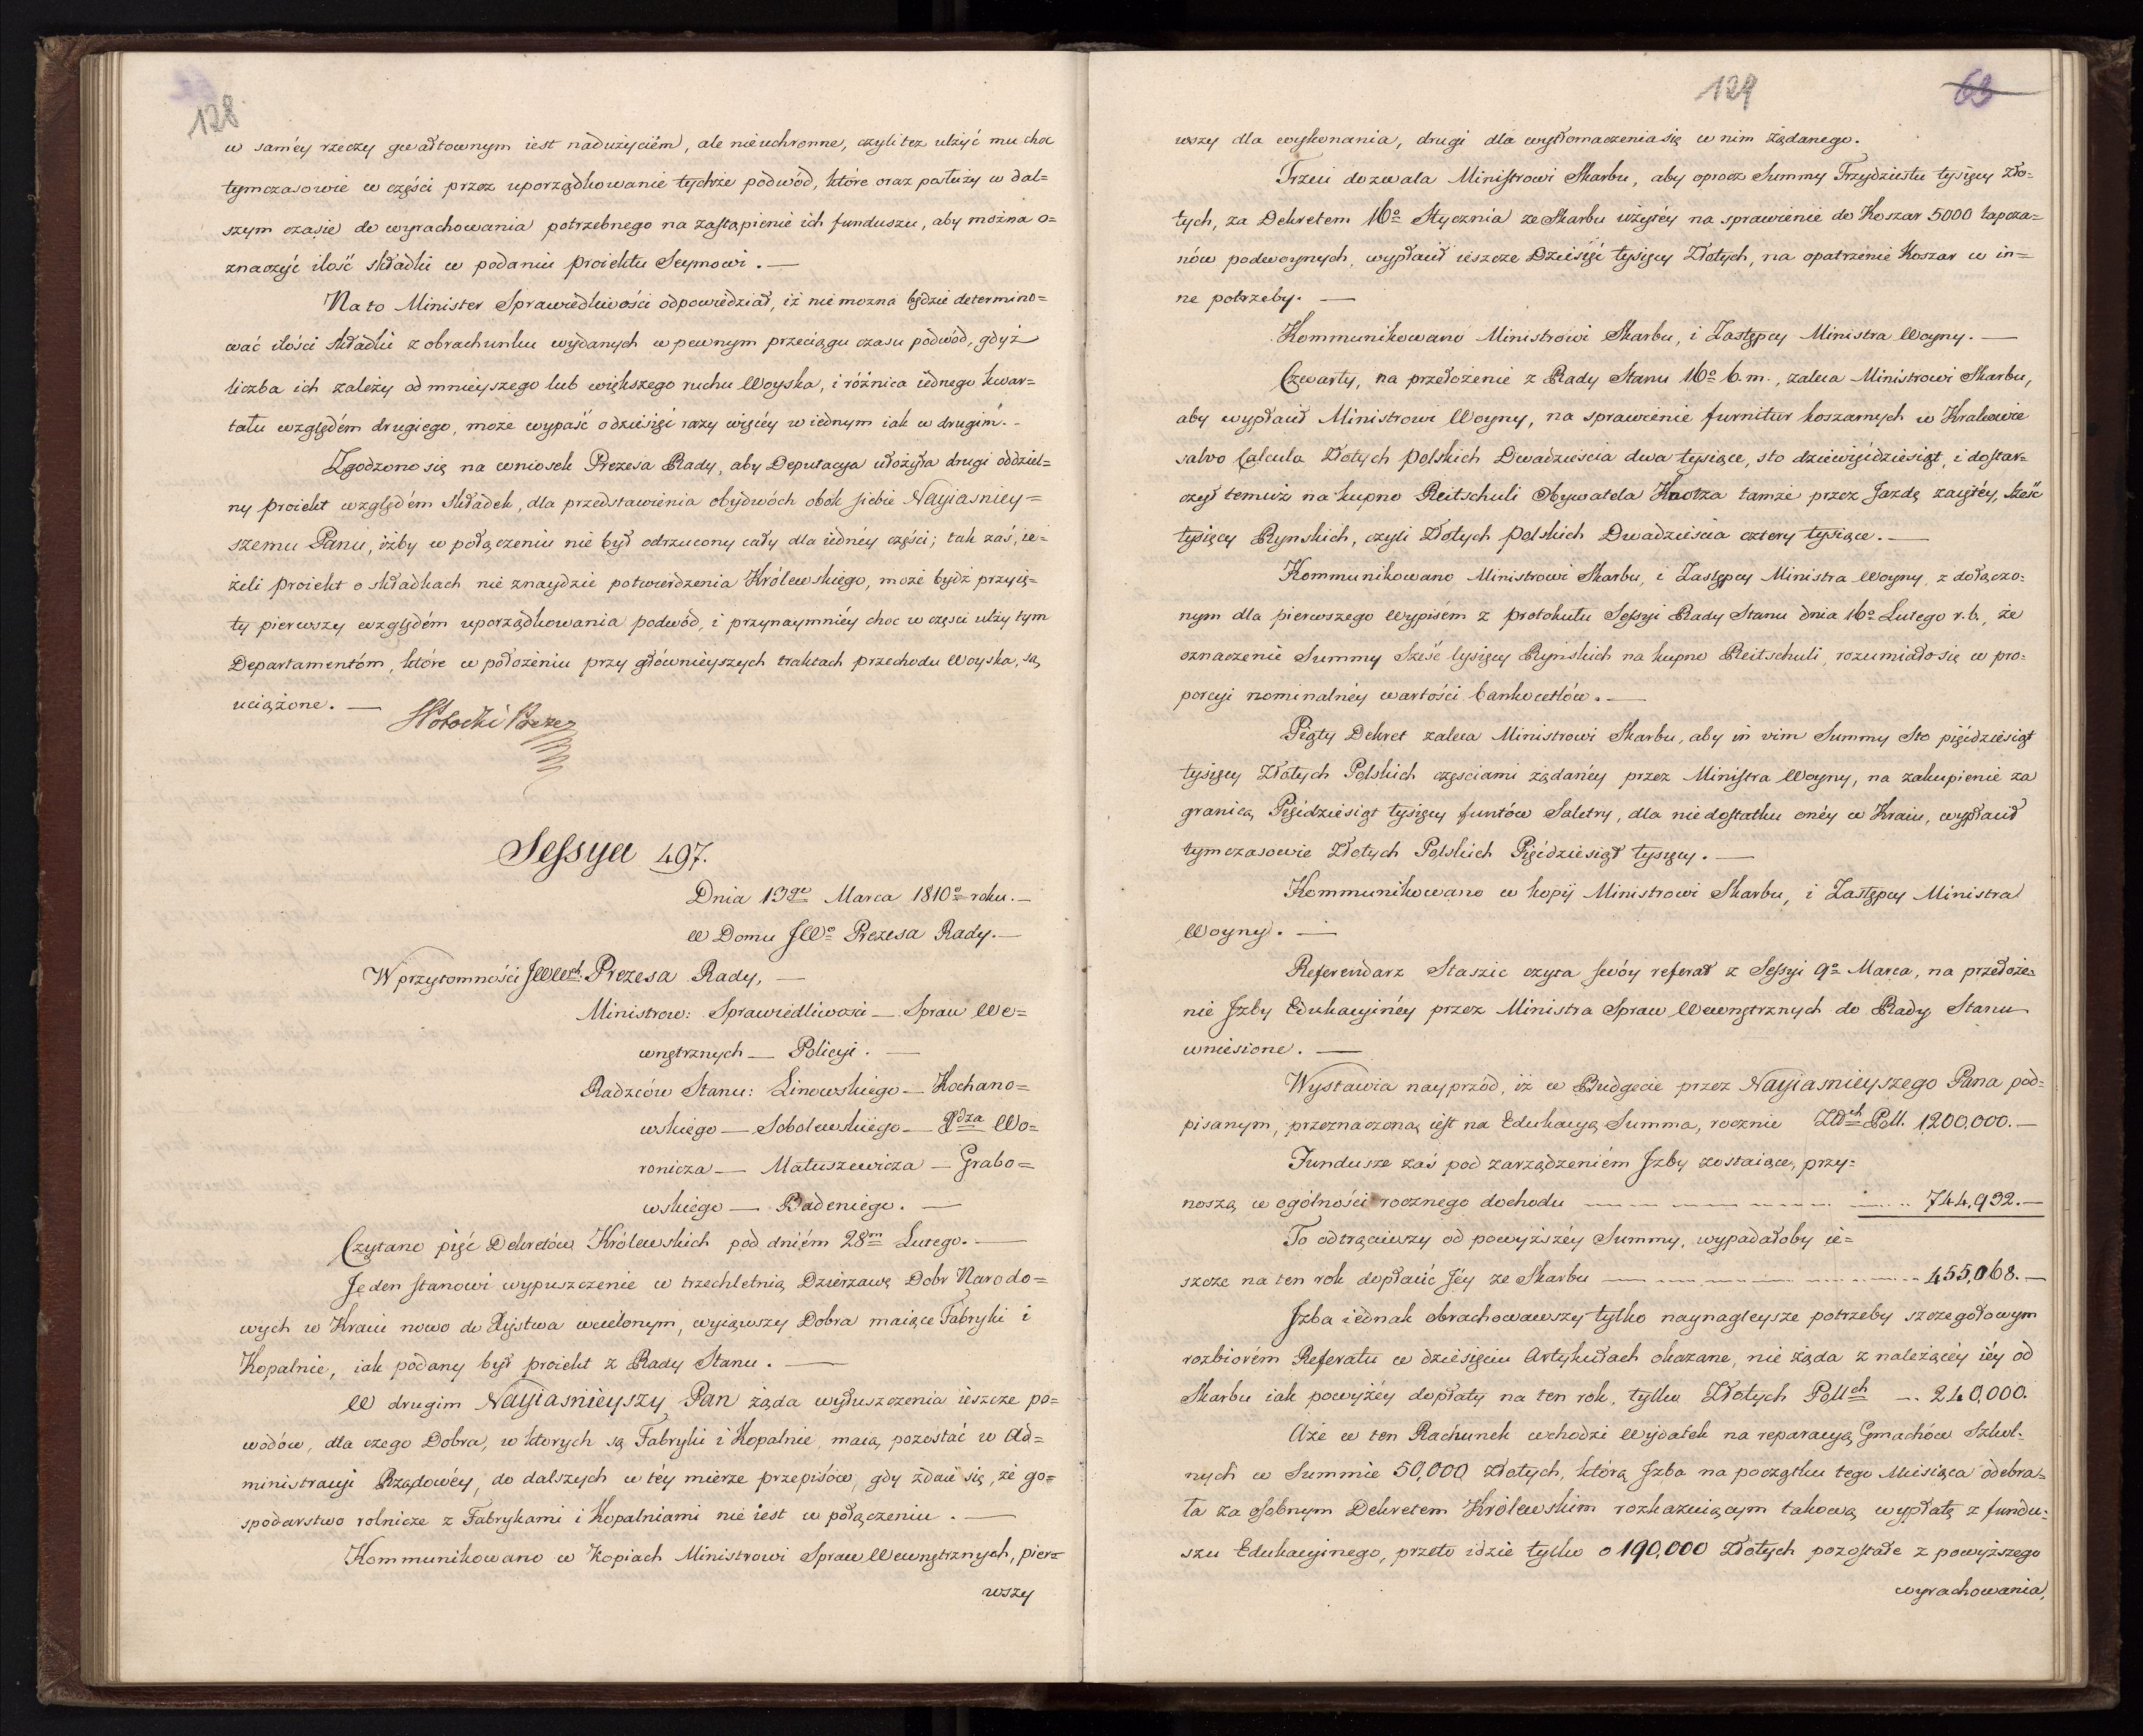 128
w saméy rzeczy gwałtownym iest nadużyciém, ale nieuchronne, czyli też ulżyć mu choc
tymczasowie w części przez uporządkowanie tychże podwód, które oraz posłużą w dal=
szym czasie do wyrachowania potrzebnego na zastąpienie ich funduszu, aby można o=
znaczyć ilość składki w podaniu proiektu Seymowi. —
Na to Minister Sprawiedliwości odpowiedział, iż nie można będzie determino=
wać ilości składki z obrachunku wydanych w pewnym przeciągu czasu podwód, gdyż
liczba ich zależy od mnieyszego lub większego ruchu Woyska, i różnica iednego kwar=
tału względém drugiego, może wypaść o dziesięć razy więcéy w iednym iak w drugim. -
Zgodzono się na wniosek Prezesa Rady, aby Deputacya ułożyła drugi oddziel=
ny proiekt względém składek, dla przedstawienia obydwóch obok siebie Nayiasniey=
szemu Panu, iżby w połączeniu nie był odrzucony cały dla iednéy części; tak zaś, ie=
żeli proiekt o składkach nie znaydzie potwierdzenia Królewskiego, może bydź przyię=
ty pierwszy względém uporządkowania podwód, i przynaymniéy choc w części ulży tym
Departamentóm, które w położeniu przy główniejszych traktach przechodu Woyska, są
uciążone. —
SPotocki Prezes
Sessya 497.
Dnia 13go Marca 1810o roku. —
w Domu JWo Prezesa Rady. —
W przytomności JWWch Prezesa Rady, —
Ministrow: Sprawiedliwości — Spraw We=
wnętrznych — Policyi. —
Radzców Stanu: Linowskiego — Kochano=
wskiego — Sobolewskiego — Xdza Wo=
ronicza — Matuszewicza — Grabo=
wskiego — Badeniego. —
Czytano pięć Dekretów Królewskich pod dniém 28m Lutego. —
Jeden stanowi wypuszczenie w trzechletnią Dzierżawę Dobr Narodo=
wych w Kraiu nowo do Xięstwa wcielonym, wyiąwszy Dobra maiące Fabryki i
Kopalnie, iak podany był proiekt z Rady Stanu. —
W drugim Nayiasnieyszy Pan żąda wyłuszczenia ieszcze po=
wodów, dla czego Dobra, w ktorych są Fabryki i Kopalnie, maią pozostać w Ad=
ministracyi Rządowéy, do dalszych w téy mierze przepisów, gdy zdaie się, że go=
spodarstwo rolnicze z Fabrykami i Kopalniami nie iest w połączeniu. —
Kommunikowano w kopiach Ministrowi Spraw Wewnętrznych, pier=
wszy
129 63
wszy dla wykonania, drugi dla wytłomaczenia się w nim żądanego.
Trzeci dozwala Ministrowi Skarbu, aby oprocz Summy Trzydziestu tysięcy zło=
tych, za Dekretem 16o Stycznia ze Skarbu wziętéy na sprawienie do Koszar 5000 tapcza=
nów podwoynych, wypłacił ieszcze Dziesięć tysięcy Złotych, na opatrzenie Koszar w in=
ne potrzeby. —
Kommunikowano Ministrowi Skarbu, i Zastępcy Ministra Woyny. —
Czwarty, na przełożenie z Rady Stanu 16o b.m., zaleca Ministrowi Skarbu,
aby wypłacił Ministrowi Woyny, na sprawienie furnitur koszarnych w Krakowie
salvo Calculo Złotych Polskich Dwadzieścia dwa tysiące, sto dziewięćdziesiąt, i dostar=
czył temuż na kupno Reitschuli Obywatela Knotza tamże przez Jazdę zaiętéy, sześć
tysięcy Ryńskich, czyli Złotych Polskich Dwadzieścia cztery tysiące. —
Kommunikowano Ministrowi Skarbu, i Zastępcy Ministra Woyny, z dołączo=
nym dla pierwszego wypisém z protokułu Sessyi Rady Stanu dnia 16o Lutego r.b., że
oznaczenie Summy Sześć tysięcy Ryńskich na kupno Reitschuli, rozumiało się w pro=
porcyi nominalnéy wartości bankocetlów. —
Piąty Dekret zaleca Ministrowi Skarbu, aby in vim Summy Sto pięćdziesiąt
tysięcy Złotych Polskich częściami żądanéy przez Ministra Woyny, na zakupienie za
granicą Pięćdziesiąt tysięcy funtów Saletry, dla niedostatku onéy w Kraiu, wypłacił
tymczasowie Złotych Polskich Pięćdziesiąt tysięcy. —
Kommunikowano w kopij Ministrowi Skarbu, i Zastępcy Ministra
Woyny. —
Referendarz Staszic czyta swóy referat z Sessyi 9o Marca, na przełoże=
nie Jzby Edukacyinéy przez Ministra Spraw Wewnętrznych do Rady Stanu
wniesione. —
Wystawia nayprzód, iż w Budgecie przez Nayiasnieyszego Pana pod=
pisanym, przeznaczoną iest na Edukacyą Summa, rocznie Złch Poll. 1200,000. —
Fundusze zaś pod zarządzeniém Jzby zostaiące, przy=
noszą w ogólności rocznego dochodu — 744,932. —
To odtrąciwszy od powyższéy Summy, wypadałoby ie=
szcze na ten rok dopłacić Jéy ze Skarbu — 455,068. —
Jzba iednak obrachowawszy tylko naynagleysze potrzeby szczegołowym
rozbiorém Referatu w dziesięciu Artykułach okazane, nie żąda z należącéy iéy od
Skarbu iak powyżéy dopłaty na ten rok, tylko Złotych Pollch — 240,000.
Aże w ten Rachunek wchodzi Wydatek na reparacyą Gmachów Szkol=
nych w Summie 50,000 Złotych, którą Jzba na początku tego Miesiąca odebra=
ła za osobnym Dekretem Królewskim rozkazuiącym takową wypłatę z fundu=
szu Edukacyinego, przeto idzie tylko o 190,000 Złotych pozostałe z powyższego
wyrachowania,